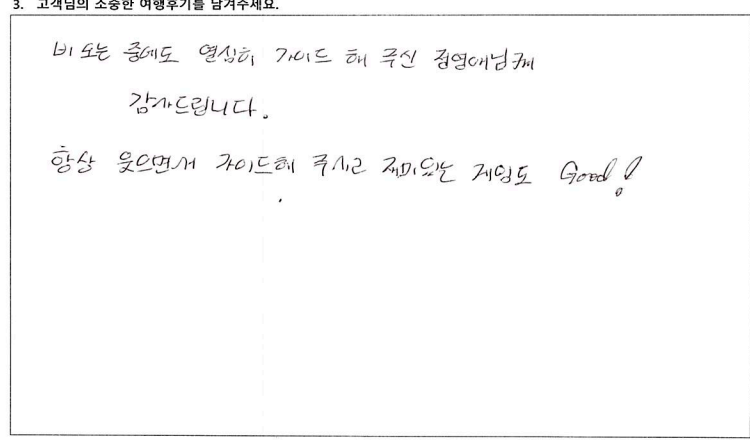 3. 고객님의 소중한 여행후기를 남겨주세요.
비 오는 중에도 열심히 가이드 해 주신 정영애님께
감사드립니다.
항상 웃으면서 가이드해 주시고 재미있는 게임도 Good!